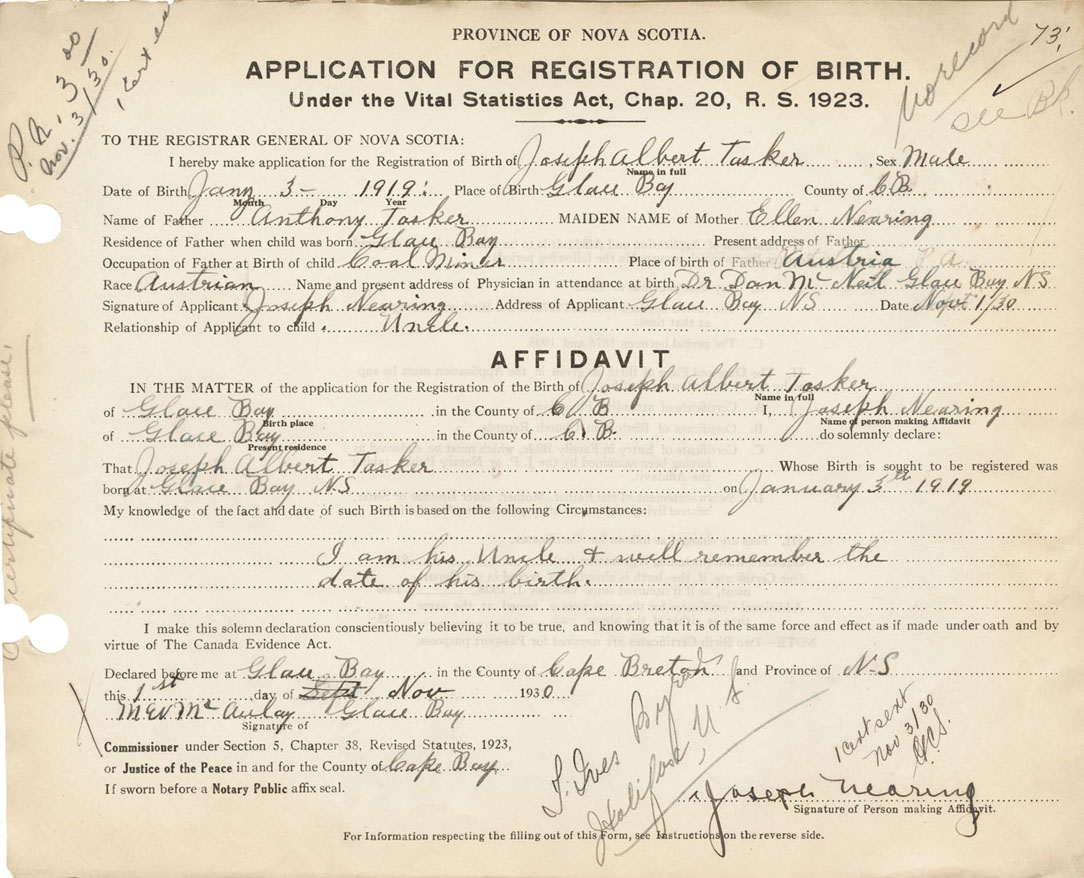 PROVINCE OF NOVA SCOTIA.
73.
No record
see Bk.
P. R. 3 00
Nov. 3/30.
1 Cert
APPLICATION FOR REGISTRATION OF BIRTH.
Under the Vital Statistics Act, Chap. 20, R. S. 1923.
TO THE REGISTRAR GENERAL OF NOVA SCOTIA:
I hereby make application for the Registration of Birth of Joseph Albert Tasker, Sex Male
Name in full
Date of Birth Jany 3- 1919. Place of Birth Glace Bay County of C.B.
Month Day Year
Name of Father Anthony Tasker MAIDEN NAME of Mother Ellen Nearing
Residence of Father when child was born Glace Bay Present address of Father
Occupation of Father at Birth of child Coal Miner Place of birth of Father Austria
Race Austrian Name and present address of Physician in attendance at birth Dr Dan McNeil Glace Bay NS
Signature of Applicant Joseph Nearing Address of Applicant Glace Bay NS Date Nov 1/30
Relationship of Applicant to child. Uncle.
AFFIDAVIT
IN THE MATTER of the application for the Registration of the Birth of Joseph Albert Tasker
Name in full
of Glace Bay in the County of C.B. I, Joseph Nearing
Birth place Name of person making Affidavit
of Glace Bay in the County of C.B. do solemnly declare:
Present residence
That Joseph Albert Tasker Whose Birth is sought to be registered was
born at Glace Bay NS on January 3rd 1919
My knowledge of the fact and date of such Birth is based on the following Circumstances:
I am his Uncle & well remember the
date of his birth.
I make this solemn declaration conscientiously believing it to be true, and knowing that it is of the same force and effect as if made under oath and by
virtue of The Canada Evidence Act.
Declared before me at Glace Bay in the County of Cape Breton and Province of N.S
this 1st day of Sept Nov 1930
McAulay Glace Bay
Signature of
Commissioner under Section 5, Chapter 38, Revised Statutes, 1923,
or Justice of the Peace in and for the County of Cape Bay
If sworn before a Notary Public affix seal.
Halifax
1 Cert sent
Nov 3/30
Joseph Nearing
Signature of Person making Affidavit.
For Information respecting the filling out of this Form, see Instructions on the reverse side.
certificate please.